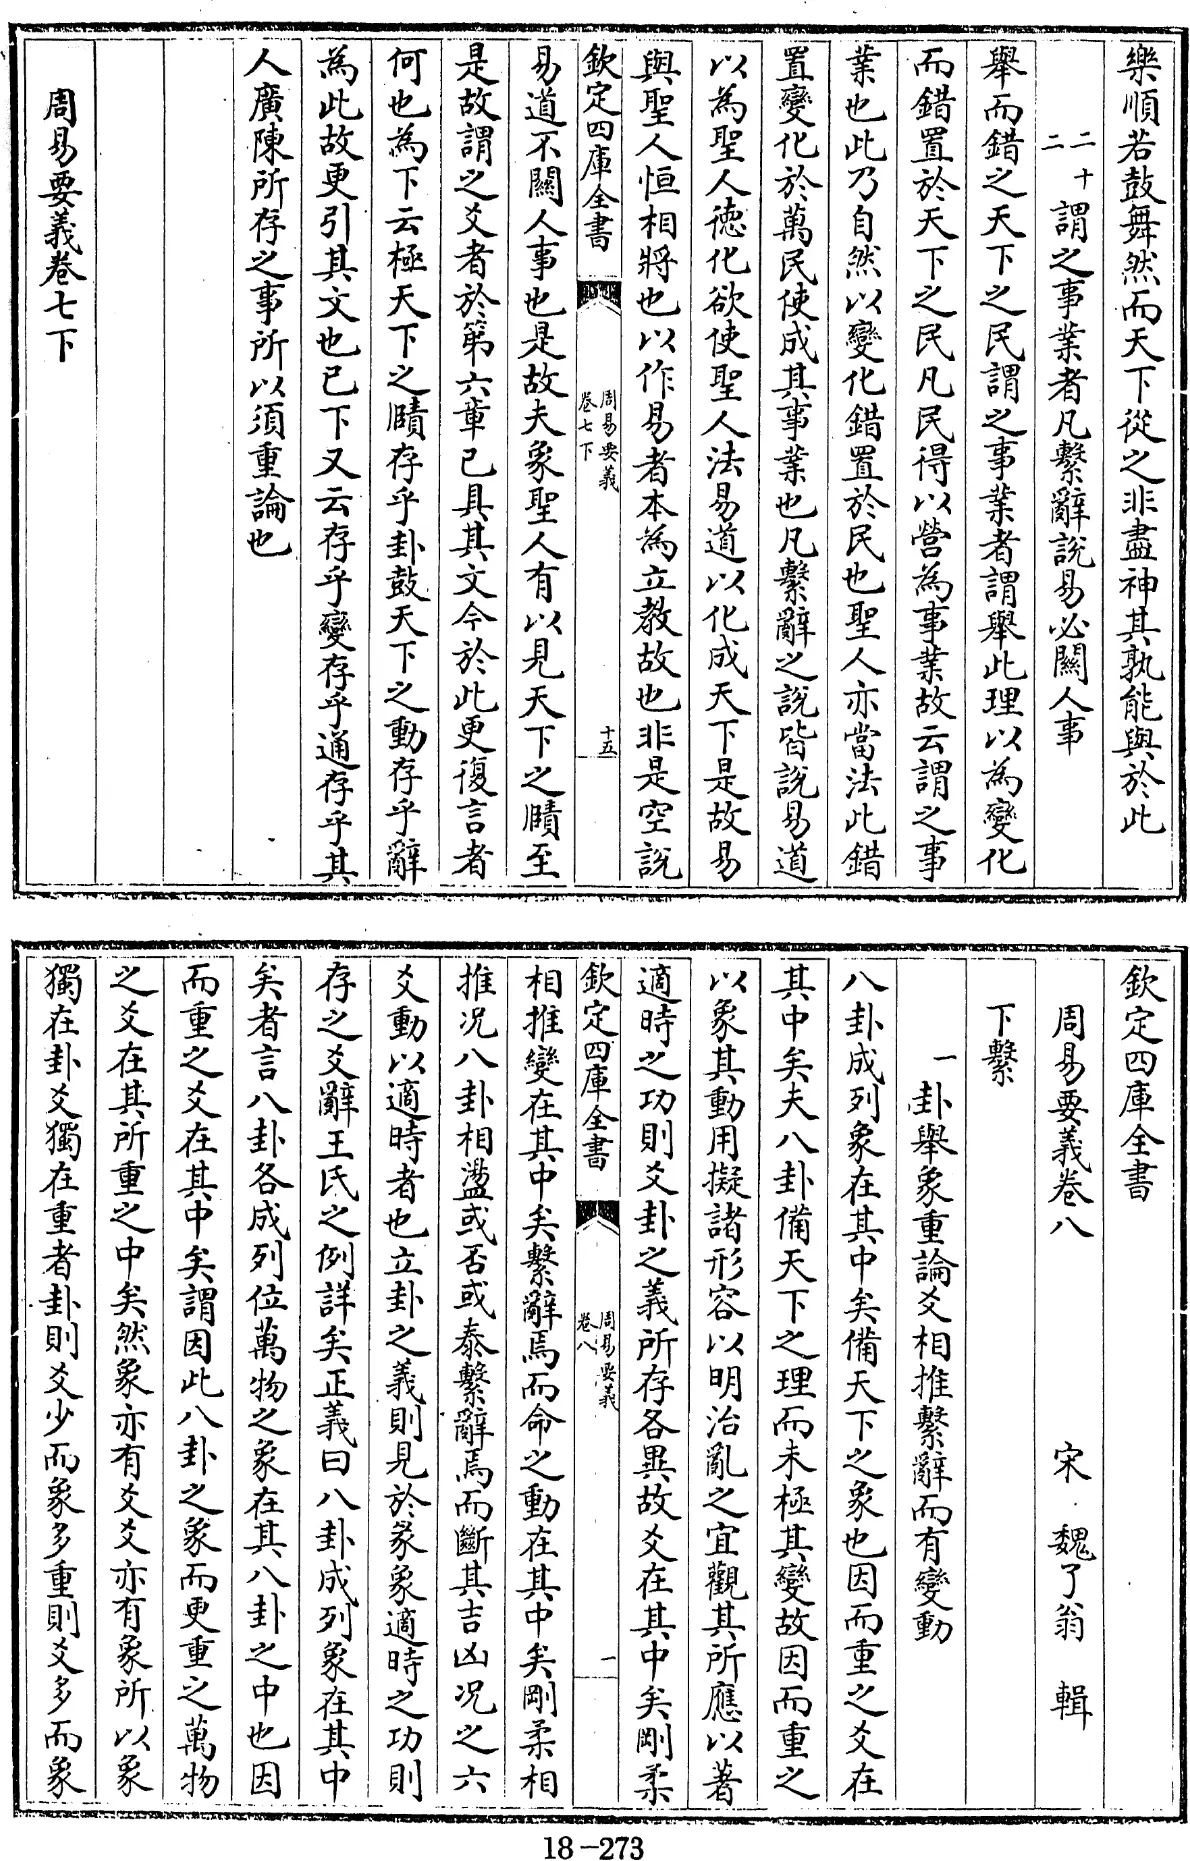 樂順若鼓舞然而天下從之非盡神其孰能與於此
二十二謂之事業者凡繫辭說易必關人事
舉而錯之天下之民謂之事業者謂舉此理以為變化
而錯置於天下之民凡民得以營為事業故云謂之事
業也此乃自然以變化錯置於民也聖人亦當法此錯
置變化於萬民使成其事業也凡繫辭之說皆說易道
以為聖人德化欲使聖人法易道以化成天下是故易
與聖人恒相將也以作易者本為立教故也非是空說
欽定四庫全書
周易要義
卷七下
十五
易道不關人事也是故夫象聖人有以見天下之賾至
是故謂之爻者於第六章已具其文今於此更復言者
何也為下云極天下之賾存乎卦鼓天下之動存乎辭
為此故更引其文也已下又云存乎變存乎通存乎其
人廣陳所存之事所以須重論也
周易要義卷七下
欽定四庫全書
周易要義卷八
宋 魏了翁 輯
下繫
一卦舉象重論爻相推繫辭而有變動
八卦成列象在其中矣備天下之象也因而重之爻在
其中矣夫八卦備天下之理而未極其變故因而重之
以象其動用擬諸形容以明治亂之宜觀其所應以著
適時之功則爻卦之義所存各異故爻在其中矣剛柔
欽定四庫全書
周易要義
卷八
一
相推變在其中矣繫辭焉而命之動在其中矣剛柔相
推況八卦相盪或否或泰繫辭焉而斷其吉凶況之六
爻動以適時者也立卦之義則見於彖象適時之功則
存之爻辭王氏之例詳矣正義曰八卦成列象在其中
矣者言八卦各成列位萬物之象在其八卦之中也因
而重之爻在其中矣謂因此八卦之象而更重之萬物
之爻在其所重之中矣然象亦有爻爻亦有象所以象
獨在卦爻獨在重者卦則爻少而象多重則爻多而象
18-273